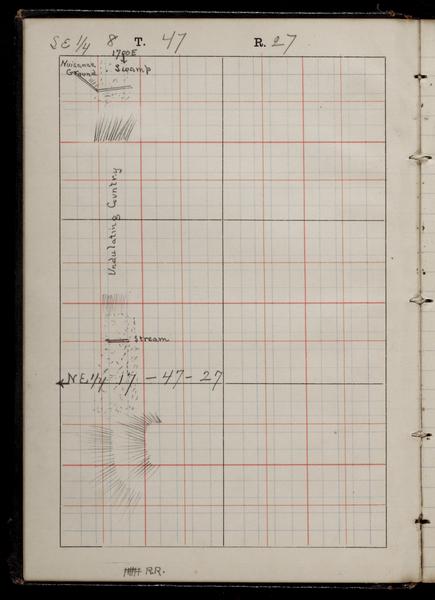 SE 1/4 8 T. 47 R. 27
1700E
Nuisance Swamp
Ground
Undulating Country
Stream
NE 1/4 17 - 47 - 27
RR.